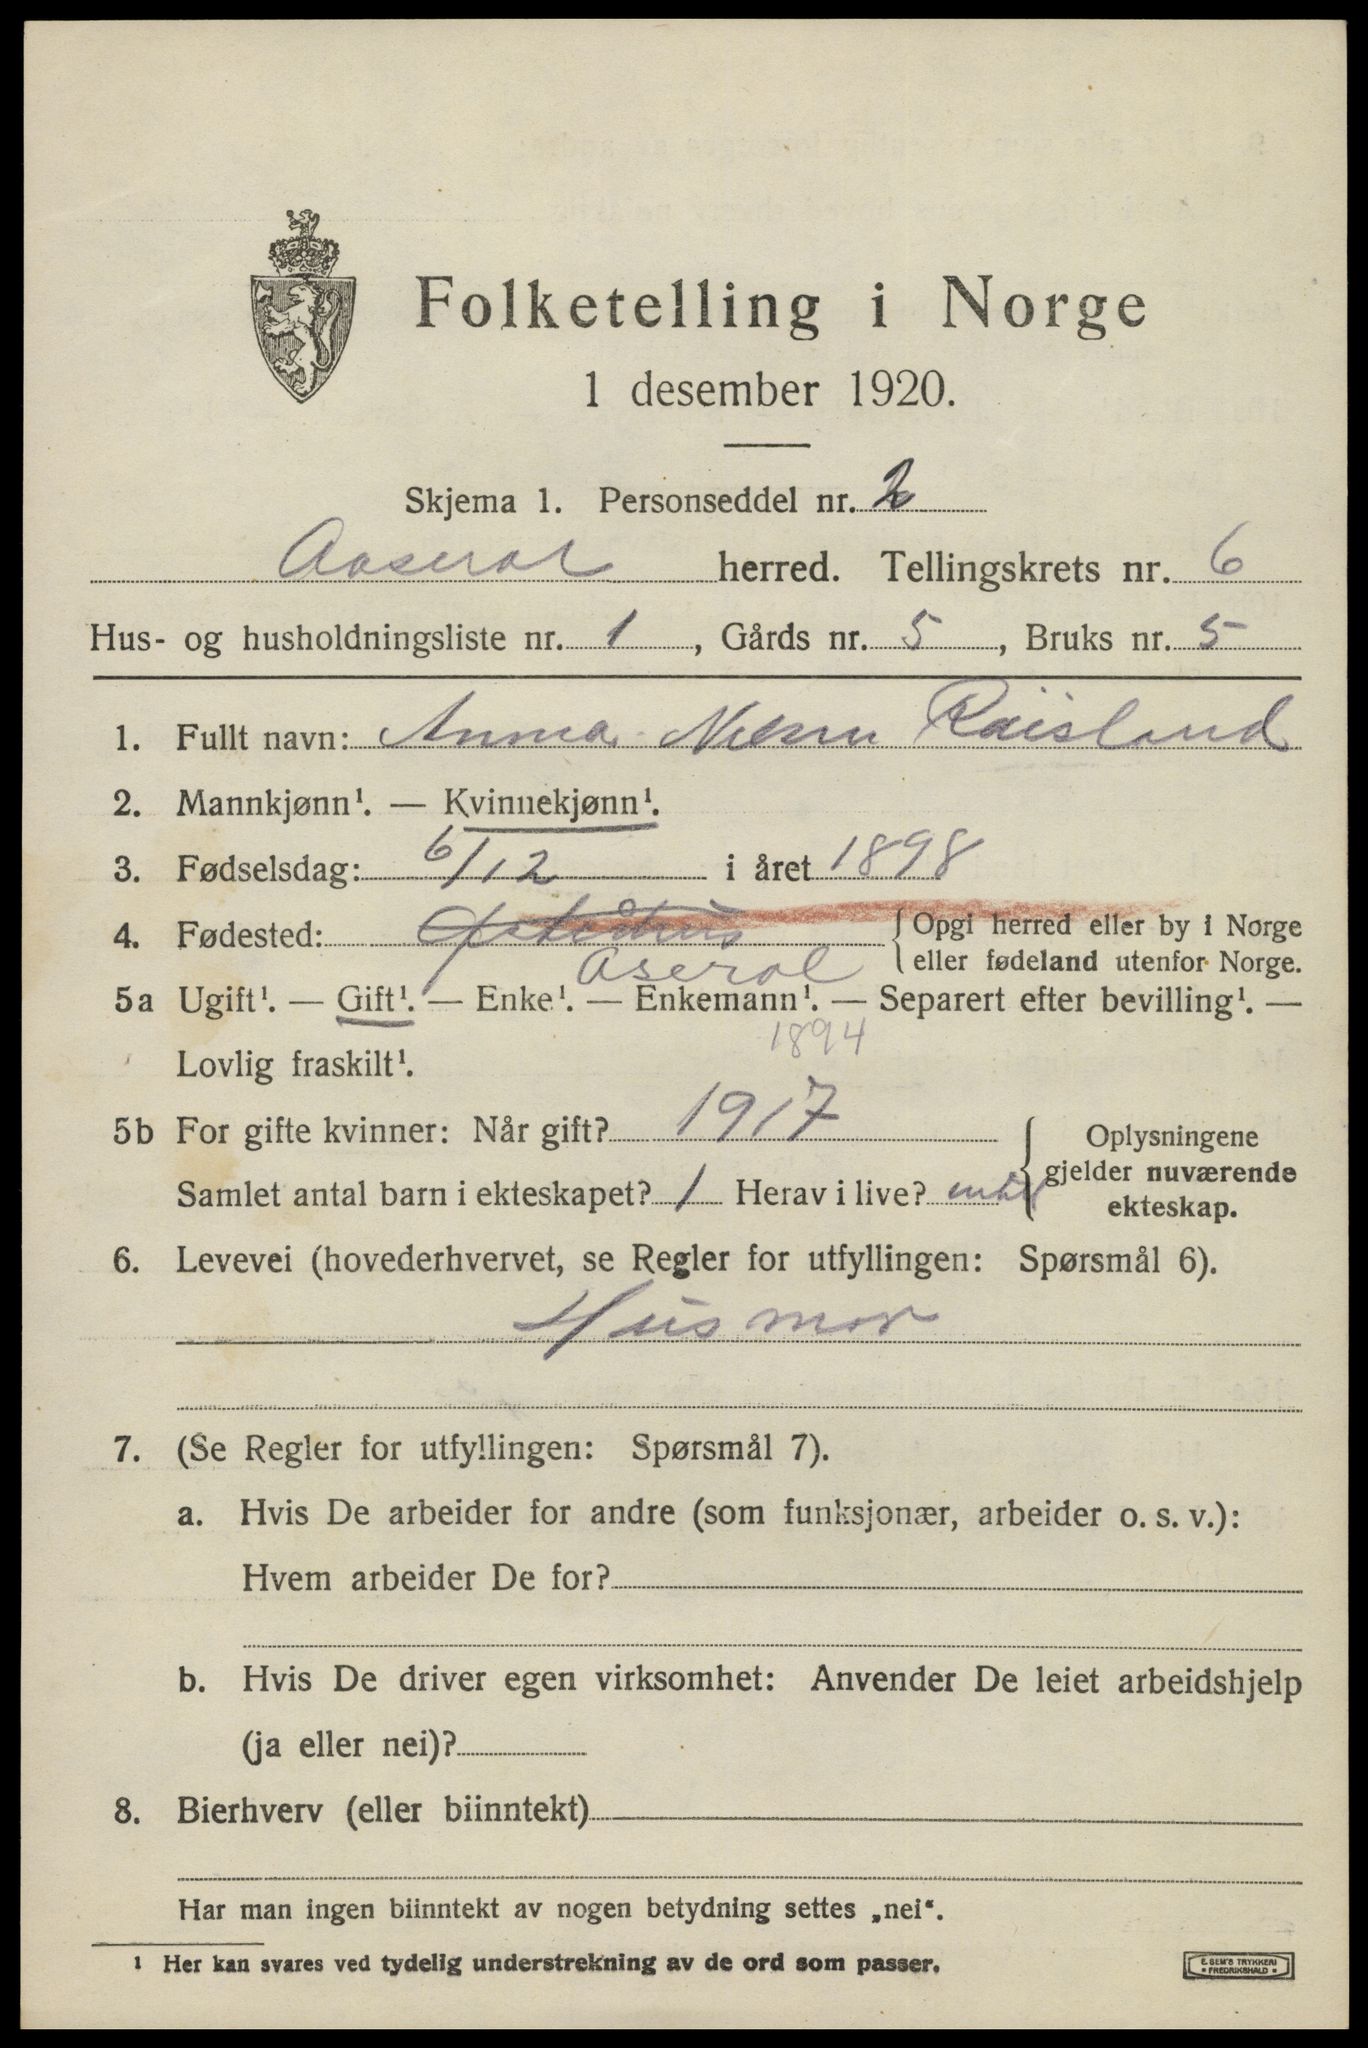 Folketelling i Norge
1 desember 1920.
Skjema 1. Personseddel nr. 2
Aaseral herred. Tellingskrets nr. 6
Hus- og husholdningsliste nr. 1, Gårds nr. 5, Bruks nr. 5
1. Fullt navn: Anna Nilsen Röisland
2. Mannkjønn¹. — Kvinnekjønn¹.
3. Fødselsdag: 6/12 i året 1898
4. Fødested: { Opgi herred eller by i Norge
Aseral eller fødeland utenfor Norge.
5a Ugift¹. — Gift¹. — Enke¹. — Enkemann¹. — Separert efter bevilling¹. —
1894
Lovlig fraskilt¹.
5b For gifte kvinner: Når gift? 1917 { Oplysningene
gjelder nuværende
Samlet antal barn i ekteskapet? 1 Herav i live?
ekteskap.
6. Levevei (hovederhvervet, se Regler for utfyllingen: Spørsmål 6).
Husmor
7. (Se Regler for utfyllingen: Spørsmål 7).
a. Hvis De arbeider for andre (som funksjonær, arbeider o. s. v.):
Hvem arbeider De for?
b. Hvis De driver egen virksomhet: Anvender De leiet arbeidshjelp
(ja eller nei)?
8. Bierhverv (eller biinntekt)
Har man ingen biinntekt av nogen betydning settes „nei“.
¹ Her kan svares ved tydelig understrekning av de ord som passer.
E. SEM'S TRYKKERI
• FREDRIKSHALD •